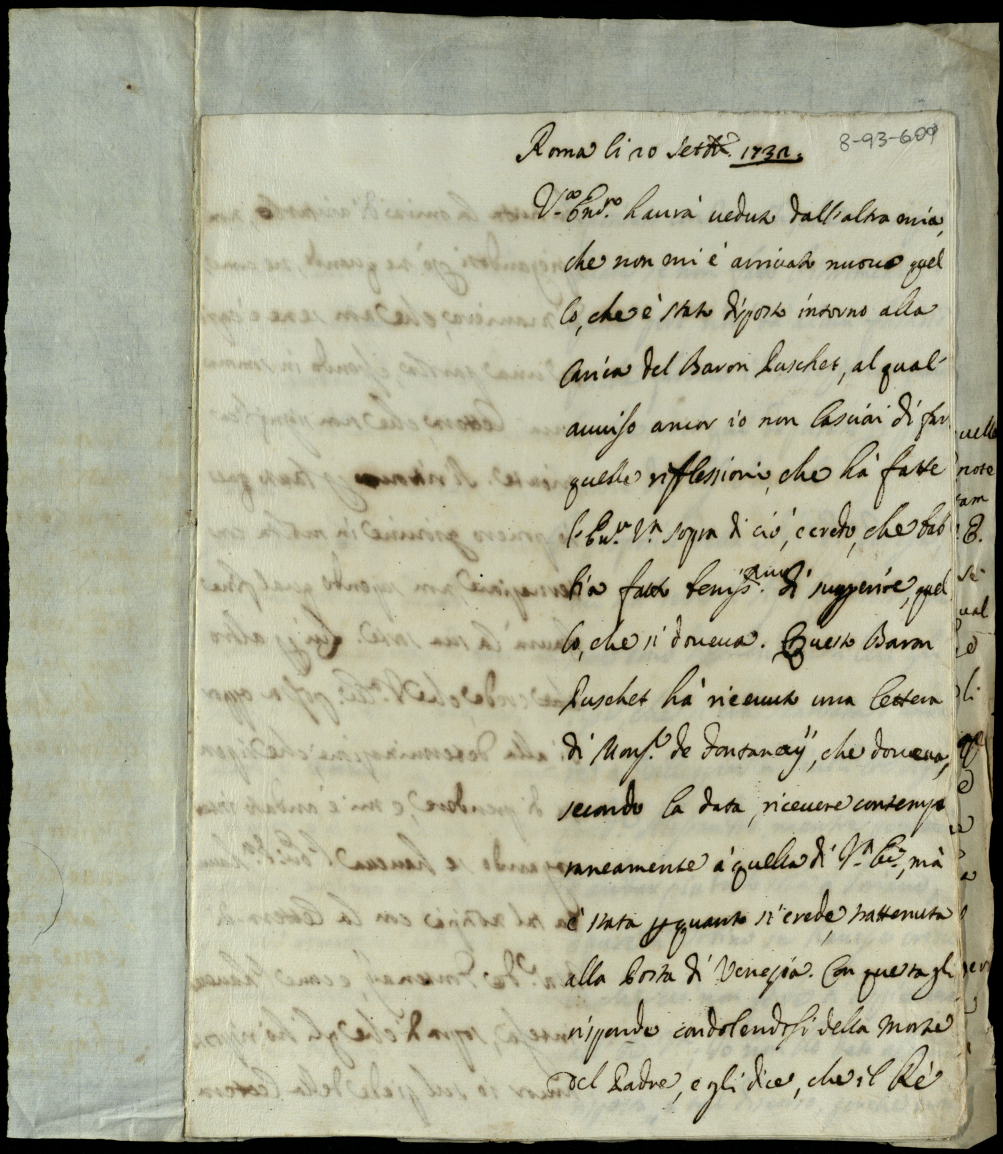 8-93-609
Roma li 20 Settre. 1732.
V.a Ecc.za haurà ueduto dall'altra mia,
che non mi è arriuato nuouo quel
lo, che è stato disposto intorno alla
Carica del Baron Puschet, al qual'
auuiso ancor io non lasciai di far
quelle riflessioni, che hà fatte
l'Ecc.za V.ra sopra di ciò, e credo, che hab
bia fatto di suggerire, quel
lo, che si doueua. Questo Baron
Puschet hà riceuuto una lettera
di Mons.r de Fontanay, che doueua,
secondo la data, riceuere contempo
raneamente à quella di V.ra Ecc.za, mà
è stata per quanto si crede, trattenuta
alla Posta di Venezia. Con questa gli
risponde condolendosi della morte
del Padre, e gli dice, che il Rè